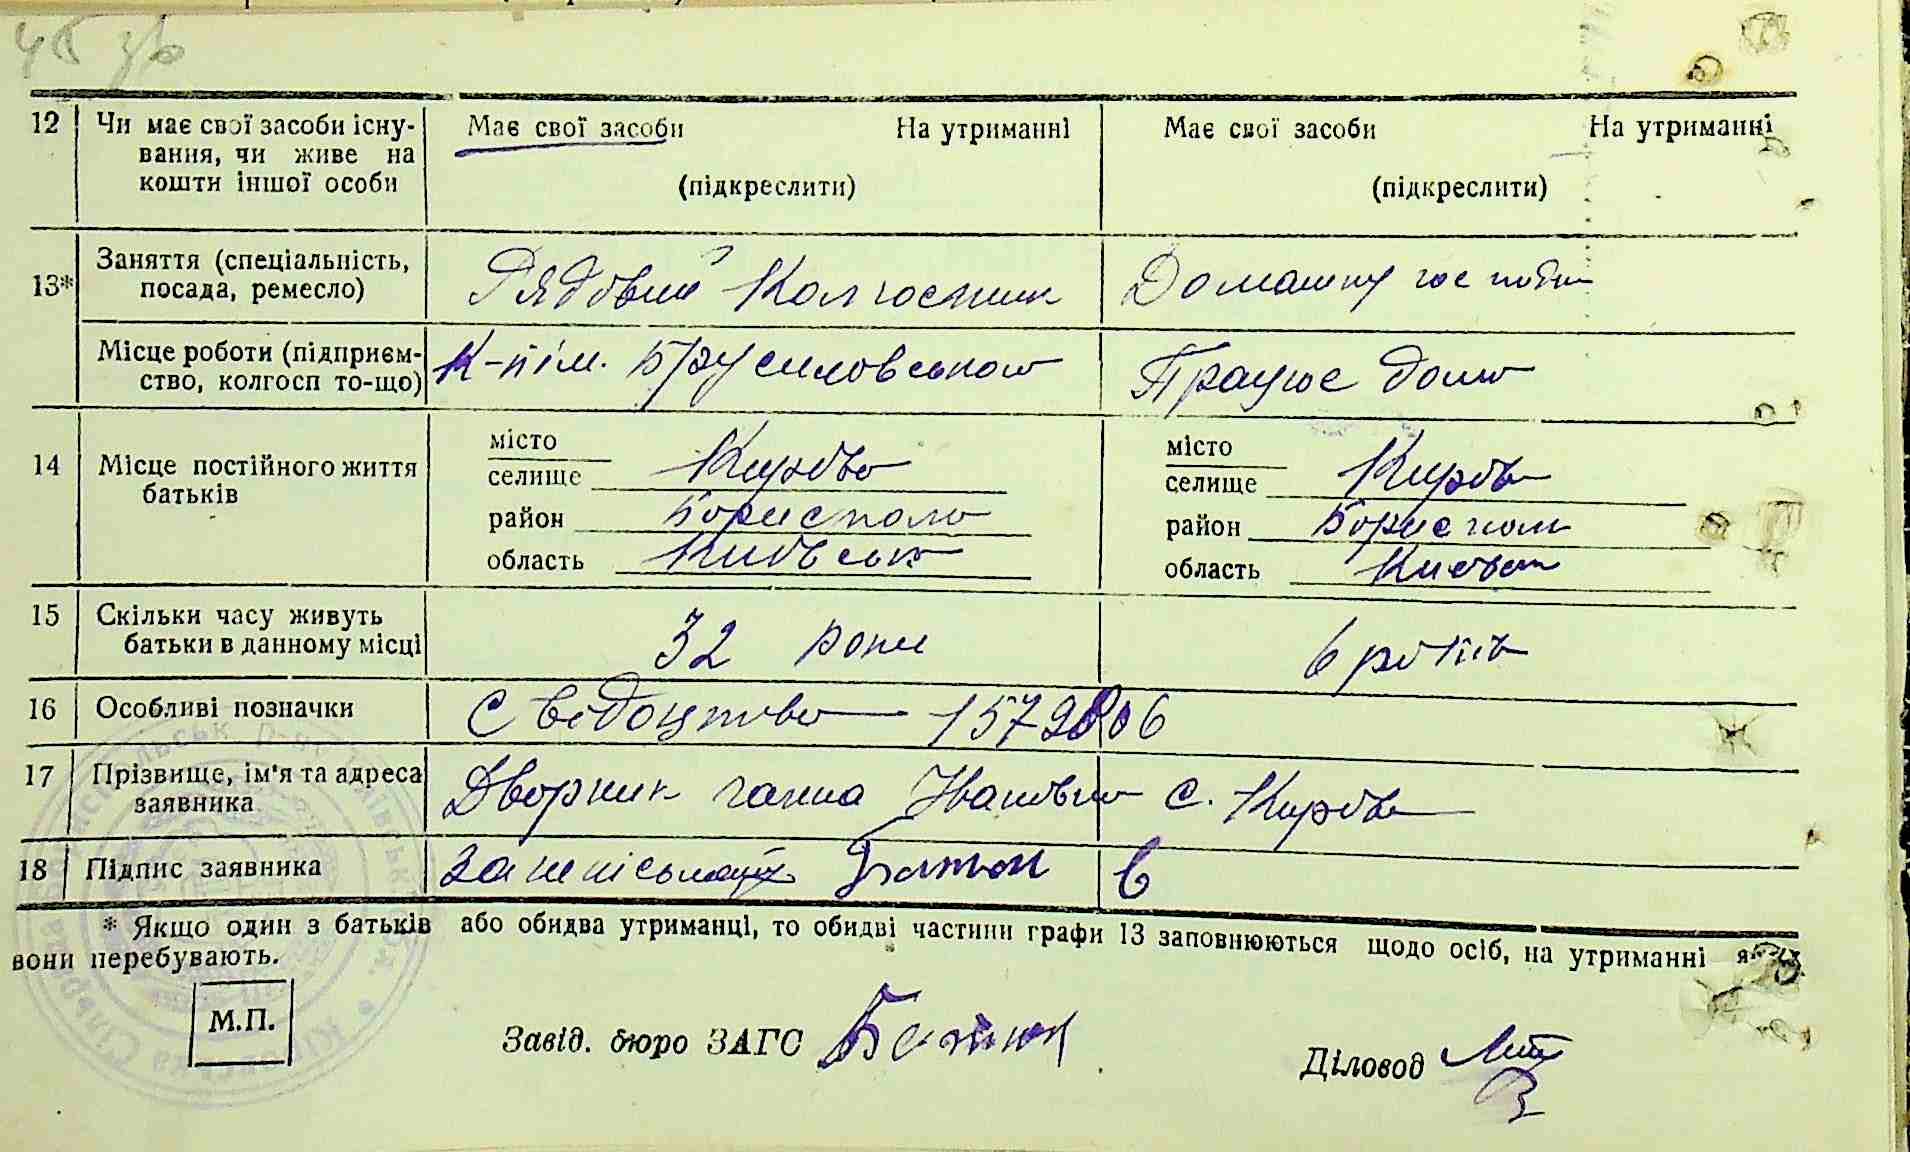 45 зв
12 Чи має свої засоби існу- Має свої засоби На утриманні Має свої засоби На утриманні
вання, чи живе на
кошти іншої особи (підкреслити) (підкреслити)
13* Заняття (спеціальність, Рядовий Колгоспник Домашну госпо
посада, ремесло)
Місце роботи (підприєм- К-п ім. Працює дома
ство, колгосп то-що)
14 Місце постійного життя місто місто
батьків селище Кирово селище Кирово
район район
область Київськ область
15 Скільки часу живуть 32 роки 6 років
батьки в данному місці
16 Особливі позначки Свідоцтво
17 Прізвище, ім'я та адреса Дворник ганна Івановна с. Кирово
заявника
18 Підпис заявника за
* Якщо один з батьків або обидва утриманці, то обидві частини графи 13 заповнюються щодо осіб, на утриманні яких
вони перебувають.
М.П. Завід. бюро ЗАГС Діловод